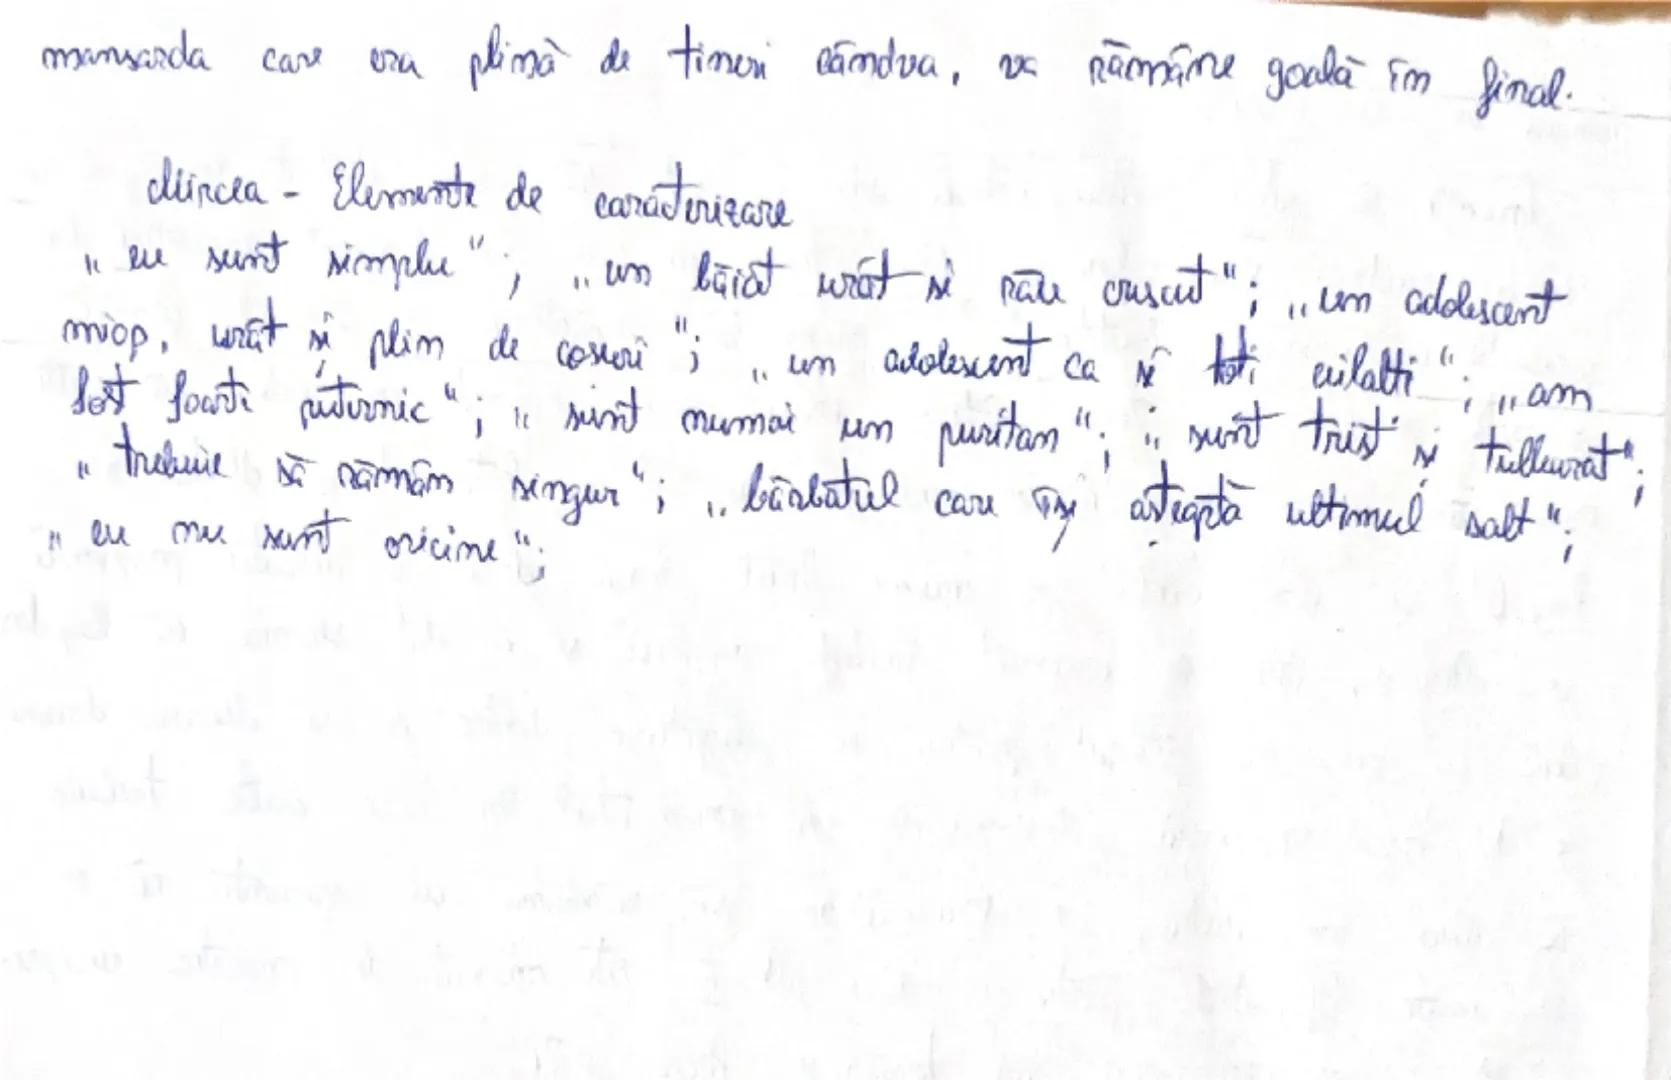 mansarda care era plină de tineri cândva, va rămâne goală în final.
Mircea - Elemente de caracterizare
„eu sunt simplu"; „un băiat urât și rău crescut"; „un adolescent
miop, urât și plin de coșuri"; „un adolescent ca și toți ceilalti"; „am
fost foarte puternic"; „sunt numai un puritan"; „sunt trist și tulburat";
„trebuie să rămân singur"; „bărbatul care își așteaptă ultimul salt";
„eu nu sunt oricine";